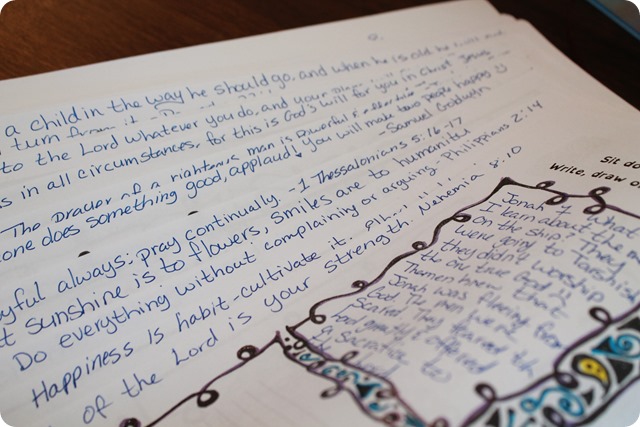 a child in the way he should go, and when he is old he
turn from it -
to the Lord whatever you do, and your
s in all circumstances, for this is God's will for you in Christ Jesus
The prayer of a righteous man is Powerful & effective
one does something good, applaud, you will make two people happy
-Samuel Goldwyn
yful always: pray continually. -1 Thessalonians 5:16-17
t sunshine is to flowers, smiles are to humanity
Do everything without complaining or arguing. Philippians 2:14
Happiness is habit - cultivate it.
of the Lord is your strength. Nehemia 8:10
Sit do
Write, draw o
Jonah 1 What
I learn about the m
on the ship? They
were going to Tarshish
they didn't worship
the one true God
knew that
Jonah was fleeing from
God. The men were
scared They feared the
offered
a Sacrifice to